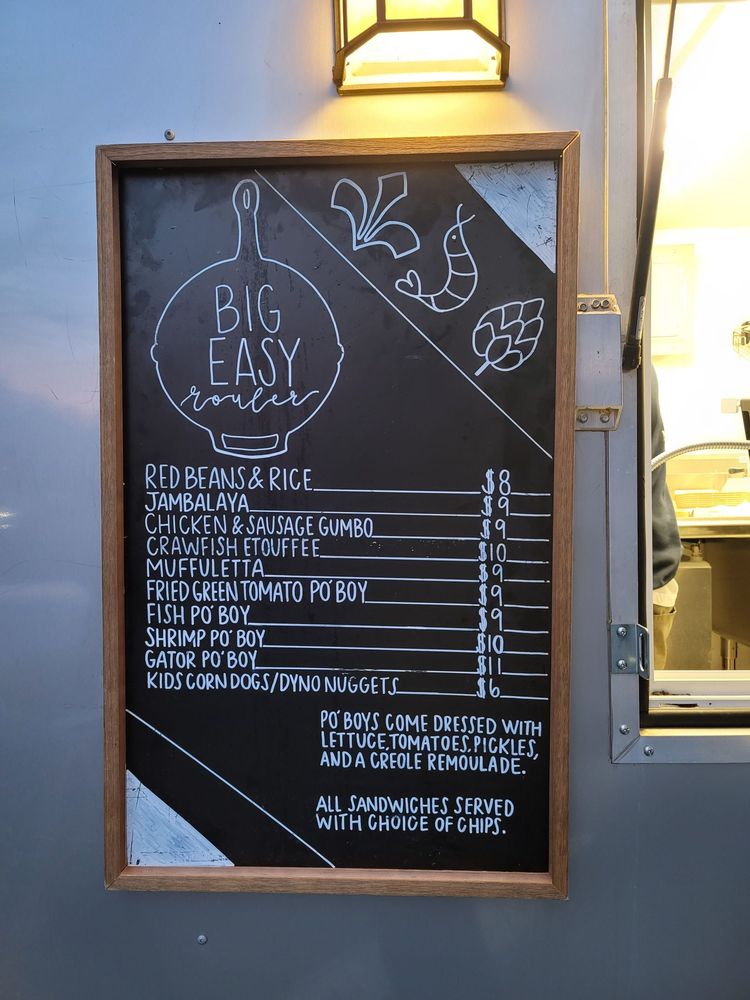 BIG
EASY
rouler
RED BEANS & RICE $8
JAMBALAYA $9
CHICKEN & SAUSAGE GUMBO $9
CRAWFISH ETOUFFEE $10
MUFFULETTA $9
FRIED GREEN TOMATO PO' BOY $9
FISH PO' BOY $9
SHRIMP PO' BOY $10
GATOR PO' BOY $11
KIDS CORN DOGS/DYNO NUGGETS $6
PO' BOYS COME DRESSED WITH
LETTUCE, TOMATOES, PICKLES,
AND A CREOLE REMOULADE.
ALL SANDWICHES SERVED
WITH CHOICE OF CHIPS.